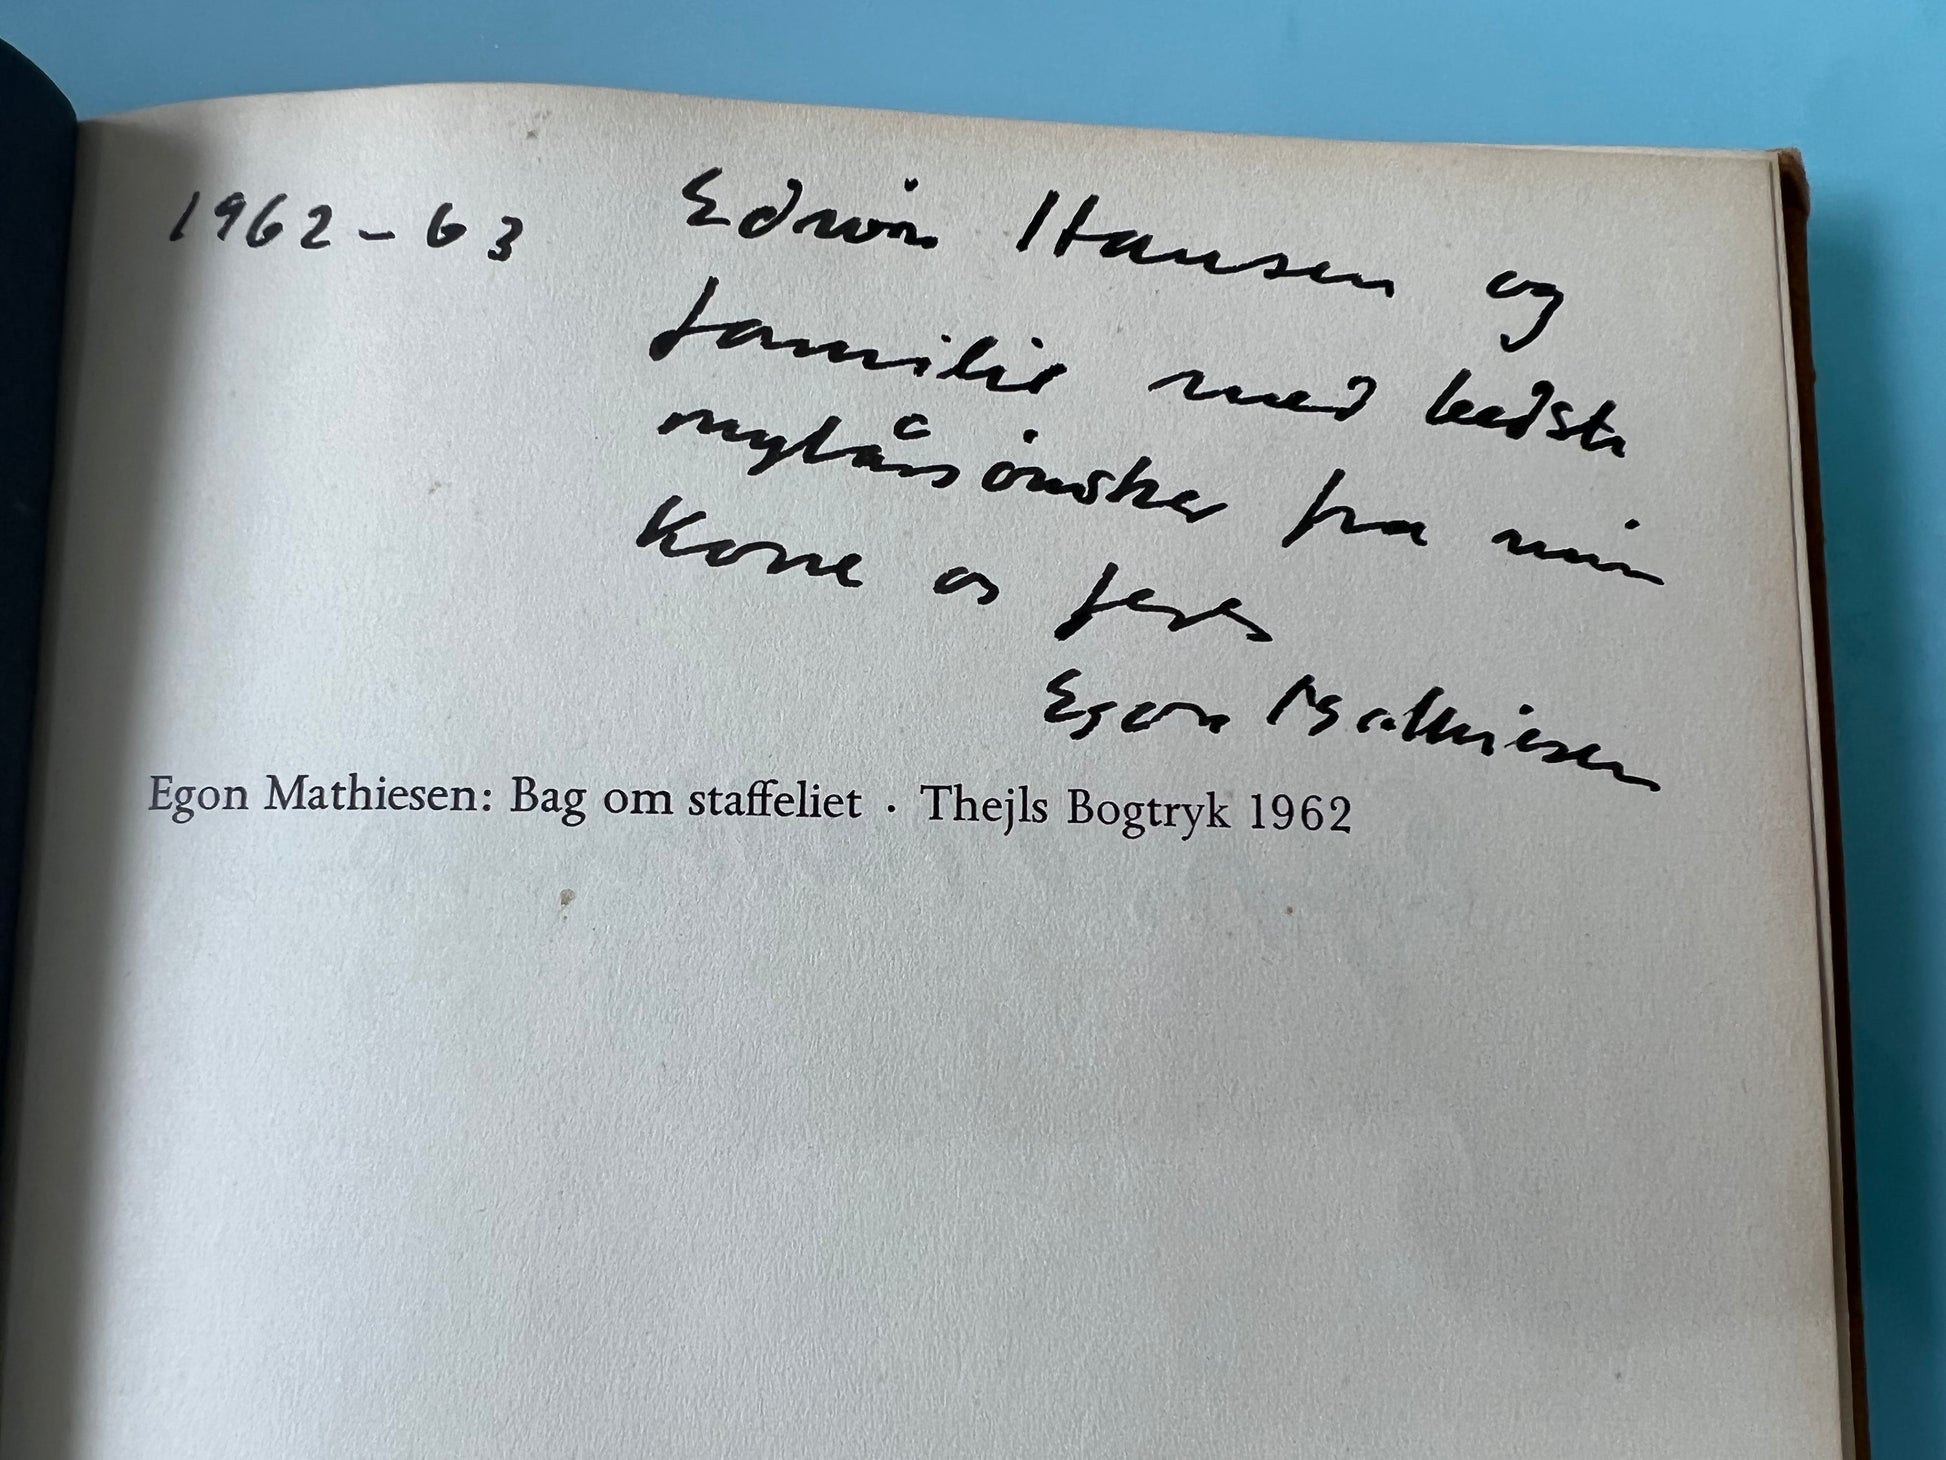 1962-63
Edwin Hansen og
familie med bedste
nytårsönsker fra min
Kone og
Egon Mathiesen
Egon Mathiesen: Bag om staffeliet · Thejls Bogtryk 1962